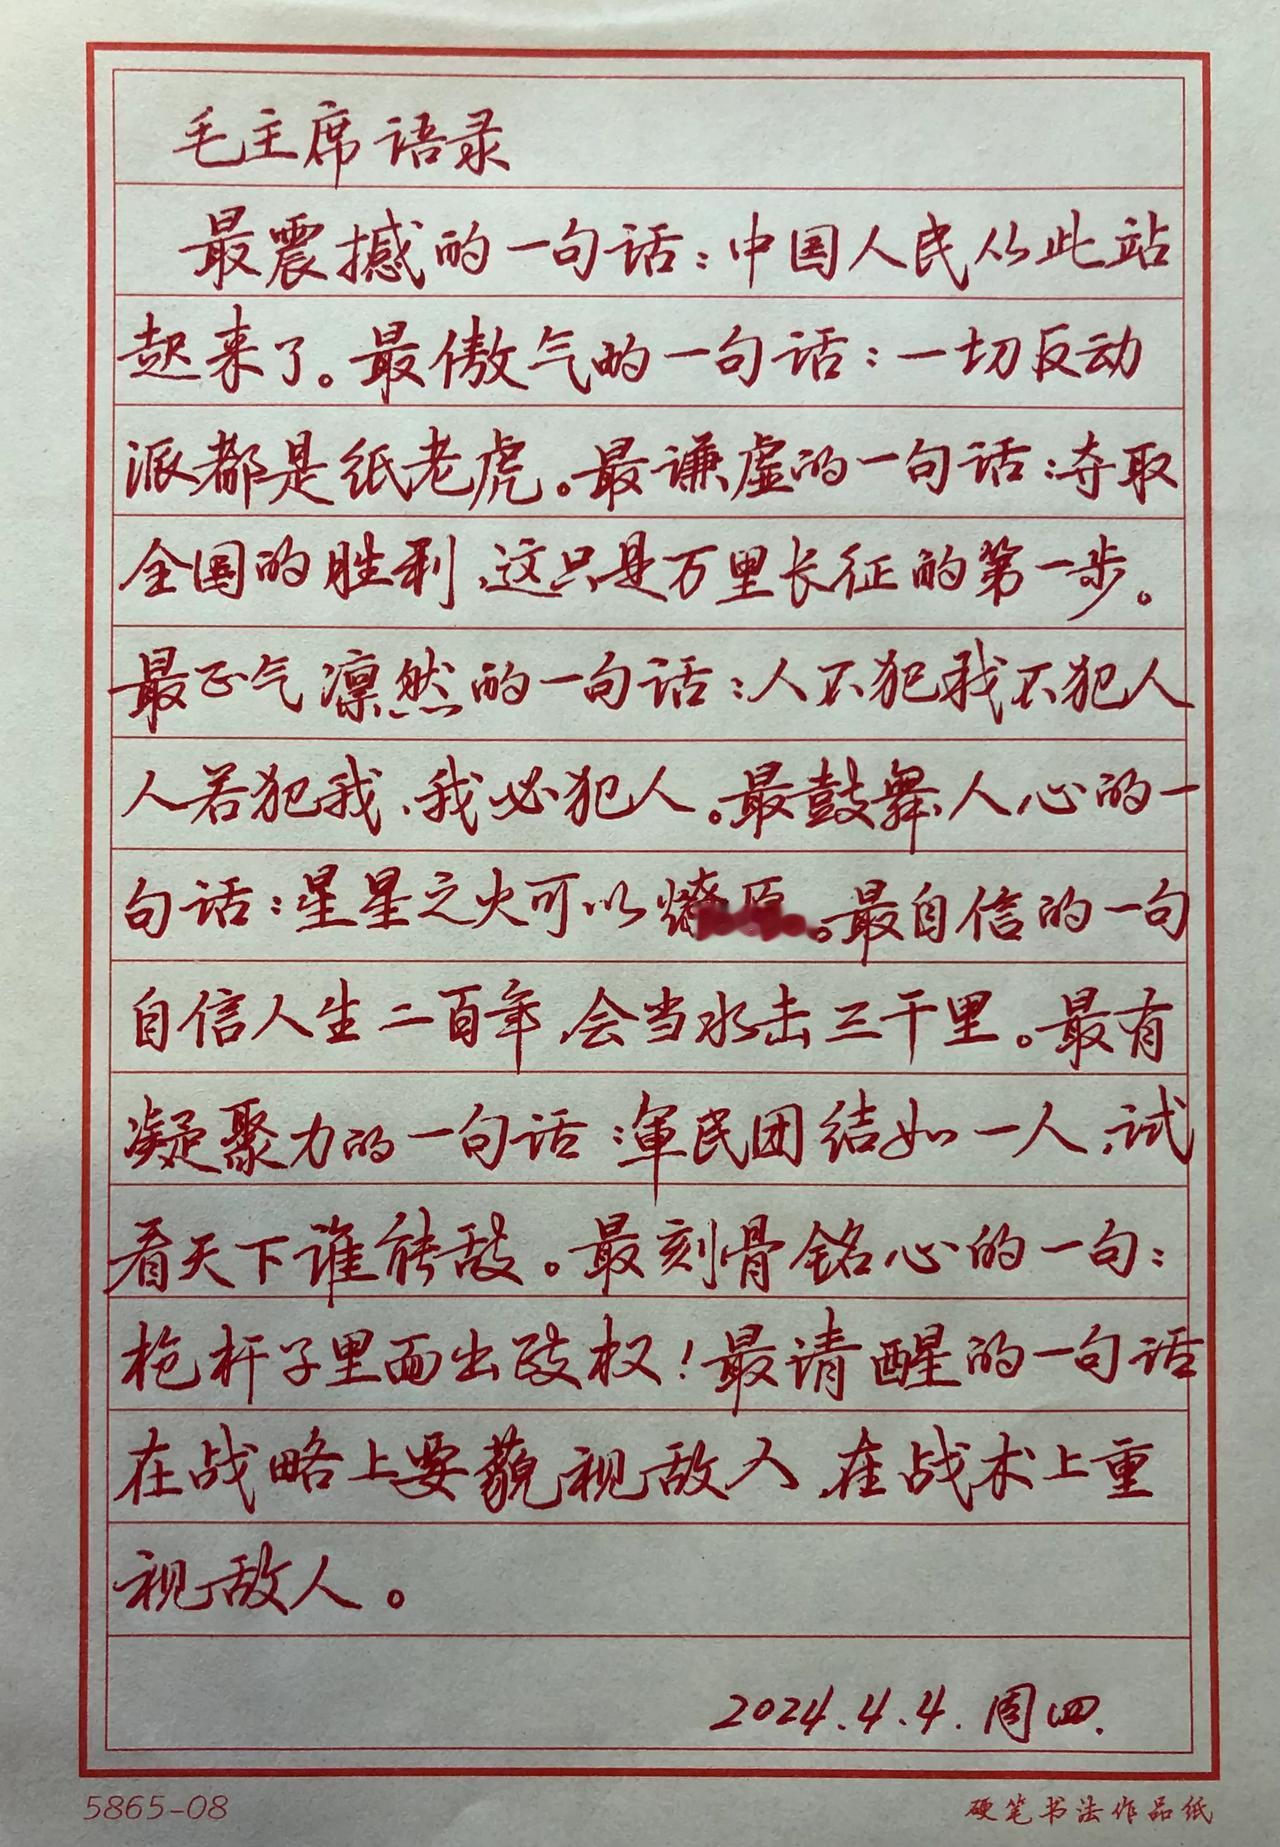 毛主席语录
最震撼的一句话：中国人民从此站
起来了。最傲气的一句话：一切反动
派都是纸老虎。最谦虚的一句话：夺取
全国的胜利，这只是万里长征的第一步。
最正气凛然的一句话：人不犯我我不犯人
人若犯我，我必犯人。最鼓舞人心的一
句话：星星之火可以燎原。最自信的一句
自信人生二百年，会当水击三千里。最有
凝聚力的一句话：军民团结如一人，试
看天下谁能敌。最刻骨铭心的一句：
枪杆子里面出政权！最请醒的一句话
在战略上要藐视敌人，在战术上重
视敌人。
2024.4.4.周四.
5865-08
硬笔书法作品纸